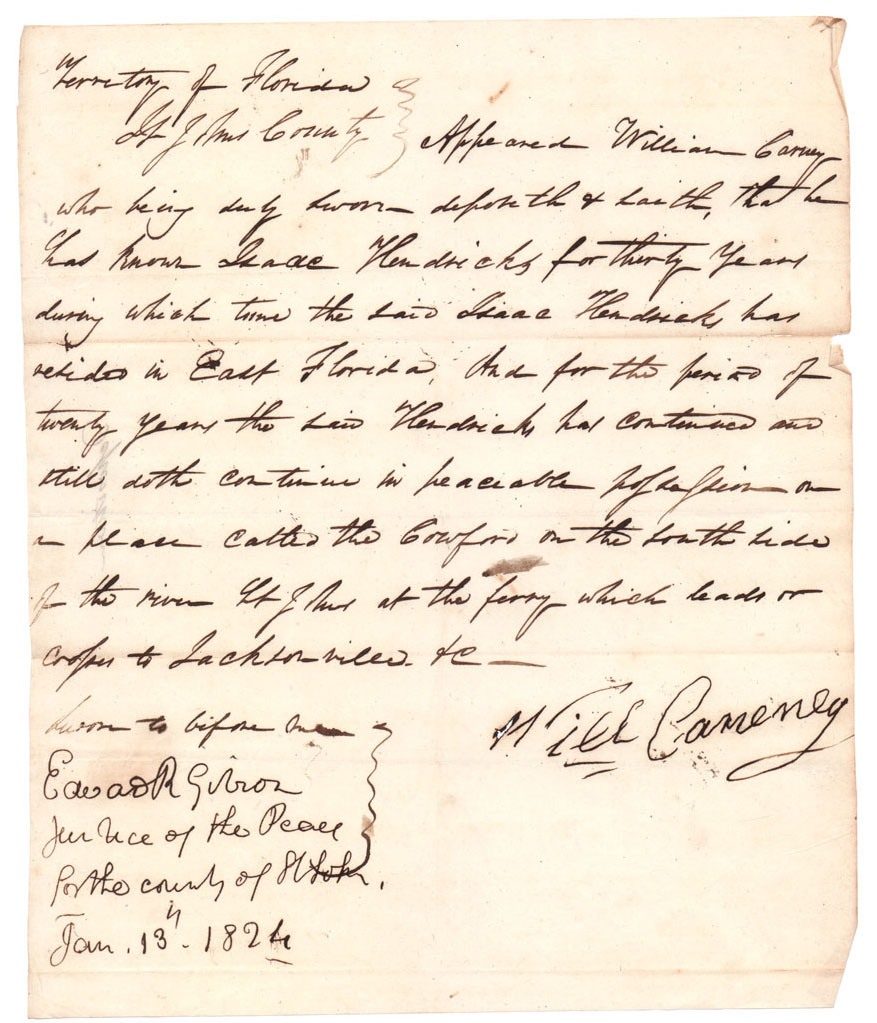 Territory of Florida
St Johns County
Appeared William Carney
who being duly sworn deposeth & saith, that he
has known Isaac Hendricks for thirty Years
during which time the said Isaac Hendricks has
resided in East Florida, And for the period of
twenty years the said Hendricks has continued and
still doth continue in peaceable possession on
a place called the Cowford on the south side
of the river St Johns at the ferry which leads or
crosses to Jacksonville &c
Sworn to before me
Will Carreney
Edward R Gibson
Justice of the Peace
for the county of St John.
Jan. 13th. 1824